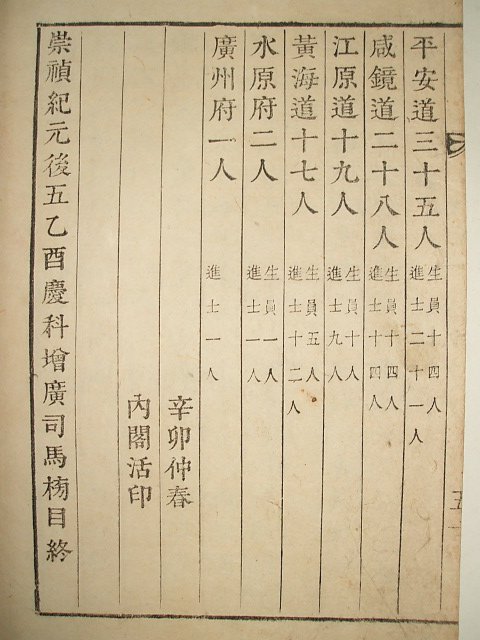 平安道三十五人 生員十四人 進士二十一人
咸鏡道二十八人 生員十四人 進士十四人
江原道十九人 生員十人 進士九人
黃海道十七人 生員五人 進士十二人
水原府二人 生員一人 進士一人
廣州府一人 進士一人
辛卯仲春
內閣活印
崇禎紀元後五乙酉慶科增廣司馬榜目終